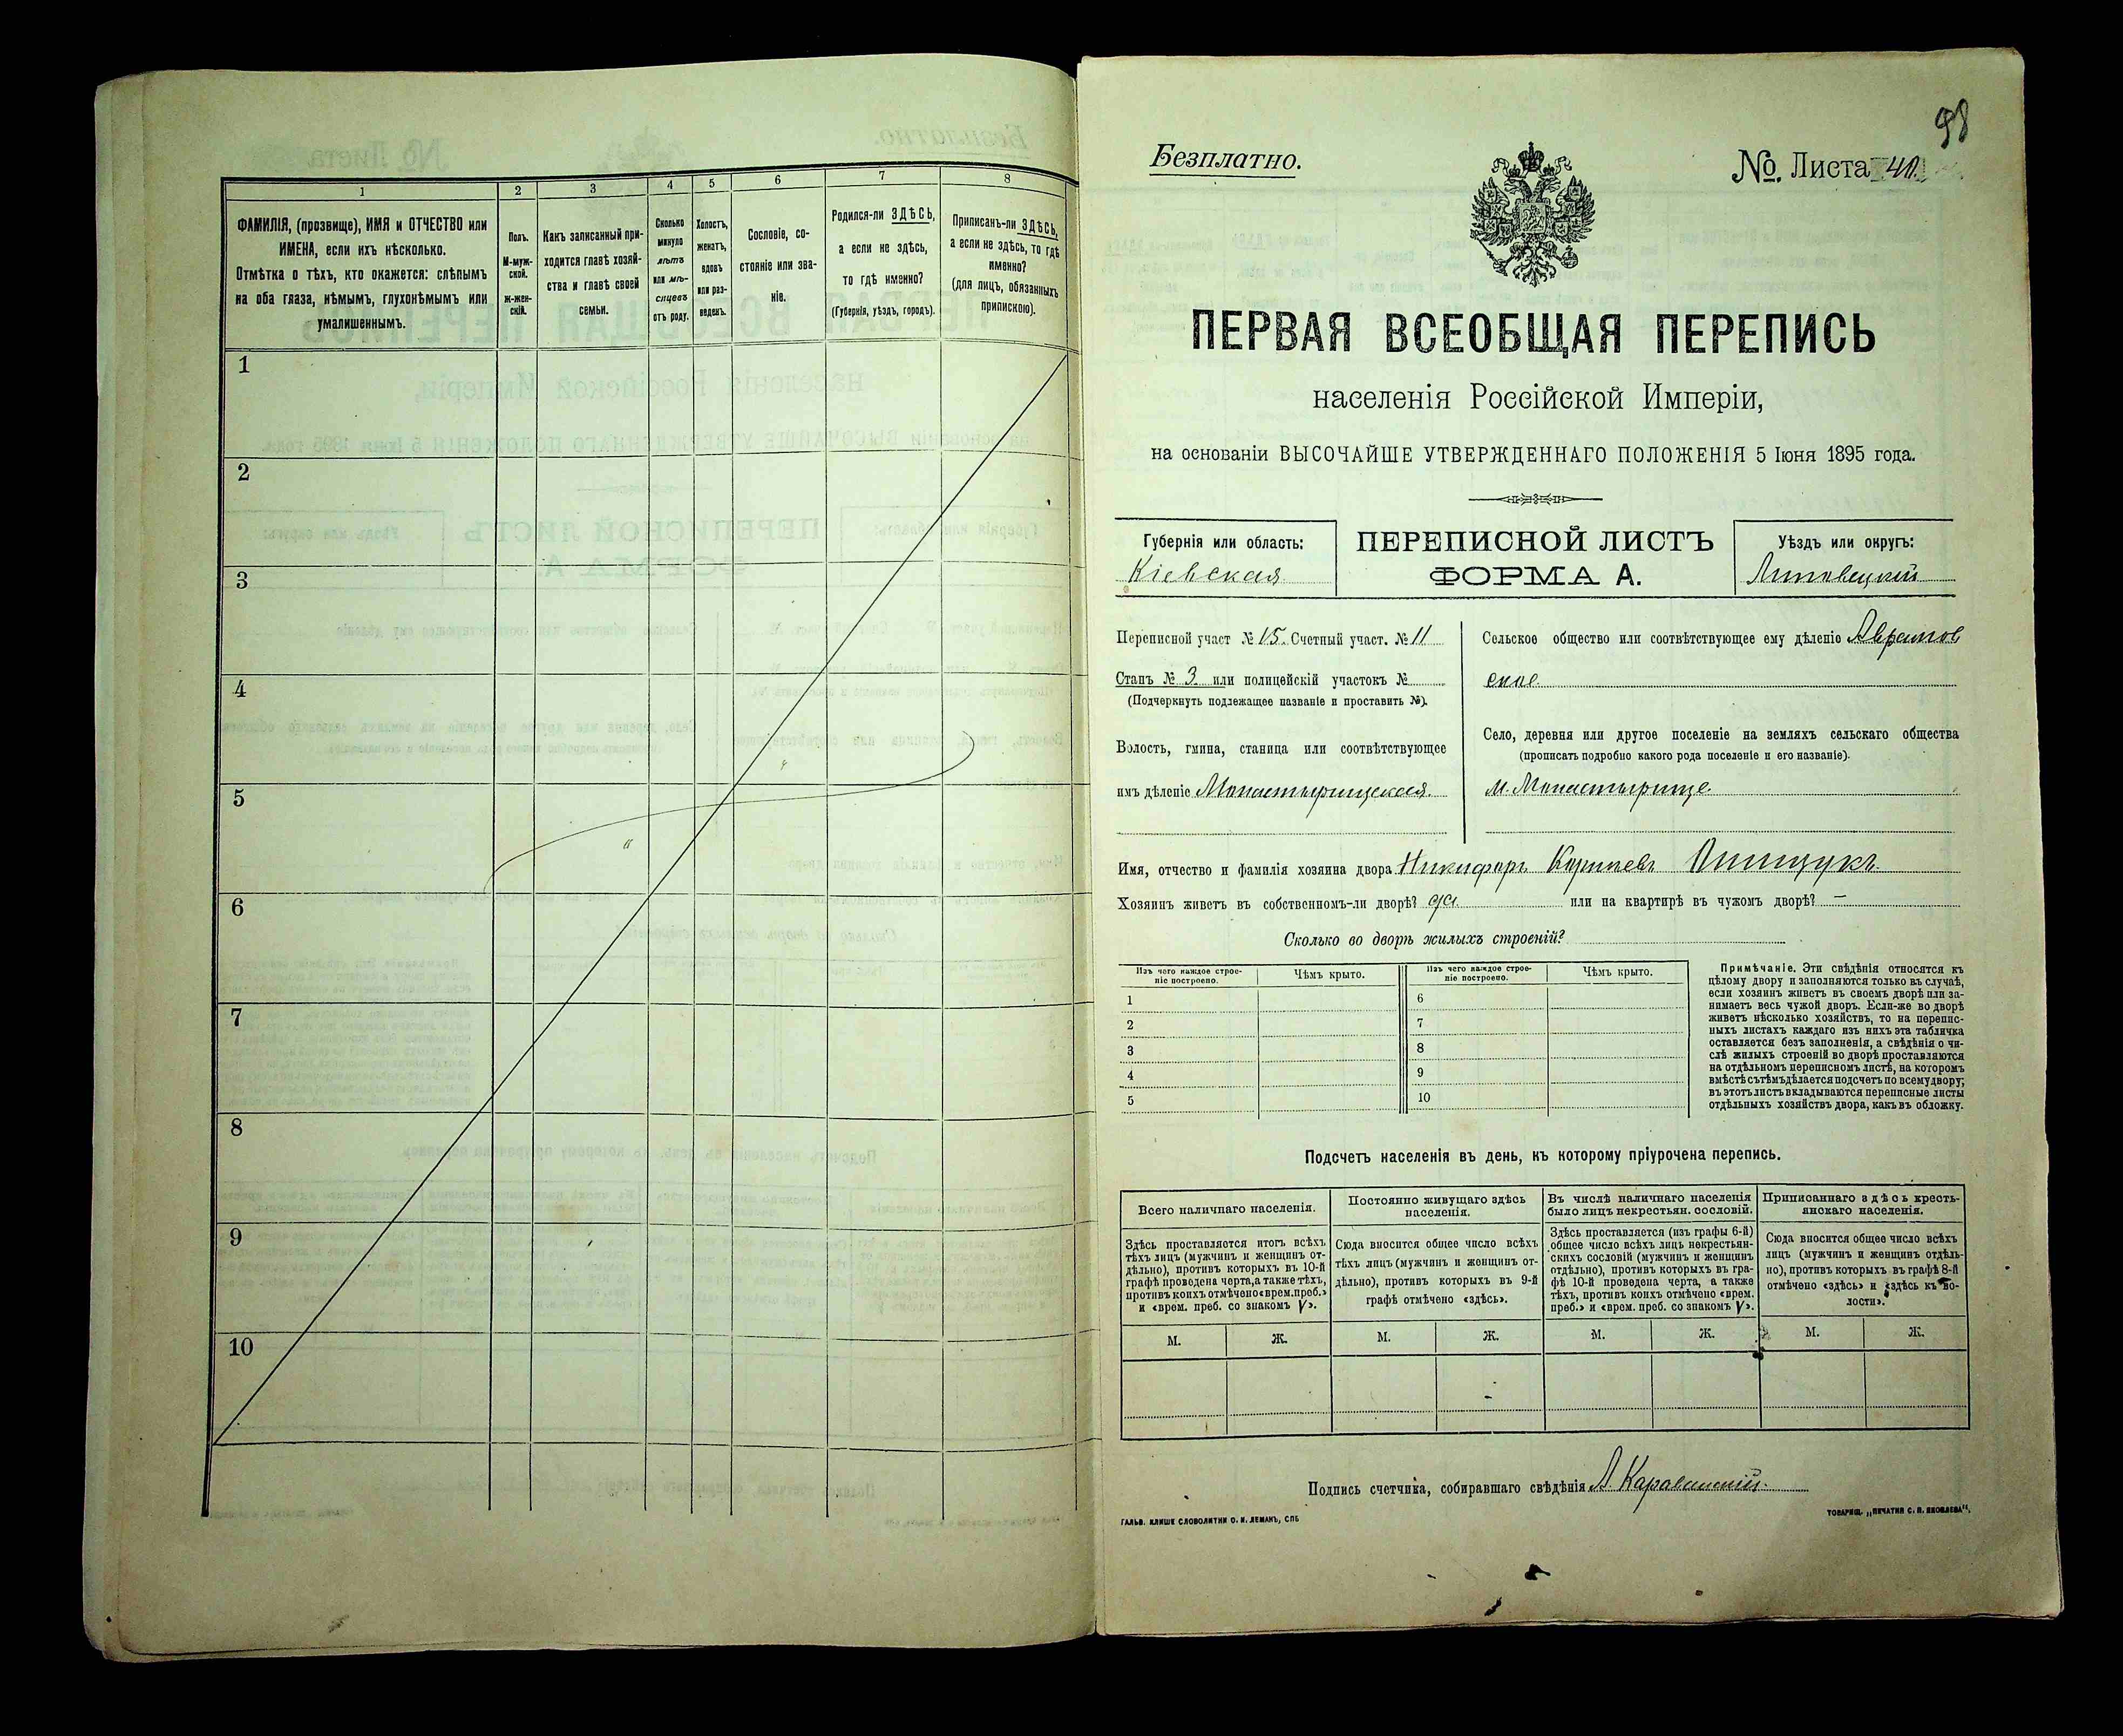 1
2
3
4
5
6
7
8
ФАМИЛІЯ, (прозвище), ИМЯ и ОТЧЕСТВО или
ИМЕНА, если ихъ нѣсколько.
Отмѣтка о тѣхъ, кто окажется: слѣпымъ
на оба глаза, нѣмымъ, глухонѣмымъ или
умалишеннымъ.
Полъ.
М-муж-
ской.
ж-жен-
скій.
Какъ записанный при-
ходится главѣ хозяй-
ства и главѣ своей
семьи.
Сколько
минуло
лѣтъ
или мѣ-
сяцевъ
отъ роду.
Холостъ,
женатъ,
вдовъ
или раз-
веденъ.
Сословіе, со-
стояніе или зва-
ніе.
Родился-ли ЗДѢСЬ,
а если не здѣсь,
то гдѣ именно?
(Губернія, уѣздъ, городъ).
Приписанъ-ли ЗДѢСЬ,
а если не здѣсь, то гдѣ
именно?
(для лицъ, обязанныхъ
припискою).
1
2
3
4
5
6
7
8
9
10
98
Безплатно.
№. Листа 40.
ПЕРВАЯ ВСЕОБЩАЯ ПЕРЕПИСЬ
населенія Россійской Имперіи,
на основаніи ВЫСОЧАЙШЕ УТВЕРЖДЕННАГО ПОЛОЖЕНІЯ 5 Іюня 1895 года.
Губернія или область:
Кіевская
ПЕРЕПИСНОЙ ЛИСТЪ
ФОРМА А.
Уѣздъ или округъ:
Липовецкій
Переписной участ № 15. Счетный участ. № 11
Станъ № 3. или полицейскій участокъ №
(Подчеркнуть подлежащее названіе и проставить №).
Волость, гмина, станица или соотвѣтствующее
имъ дѣленіе Монастырищская.
Сельское общество или соотвѣтствующее ему дѣленіе Аврамов
ское.
Село, деревня или другое поселеніе на земляхъ сельскаго общества
(прописать подробно какого рода поселеніе и его названіе).
м. Монастырище.
Имя, отчество и фамилія хозяина двора Никифоръ Корнѣевъ Онищукъ.
Хозяинъ живетъ въ собственномъ-ли дворѣ? да. или на квартирѣ въ чужомъ дворѣ? —
Сколько во дворѣ жилыхъ строеній?
Изъ чего каждое строе-
ніе построено.
Чѣмъ крыто.
Изъ чего каждое строе-
ніе построено.
Чѣмъ крыто.
1
2
3
4
5
6
7
8
9
10
Примѣчаніе. Эти свѣдѣнія относятся къ
цѣлому двору и заполняются только въ случаѣ,
если хозяинъ живетъ въ своемъ дворѣ или за-
нимаетъ весь чужой дворъ. Если-же во дворѣ
живетъ нѣсколько хозяйствъ, то на перепис-
ныхъ листахъ каждаго изъ нихъ эта табличка
оставляется безъ заполненія, а свѣдѣнія о чи-
слѣ жилыхъ строеній во дворѣ проставляются
на отдѣльномъ переписномъ листѣ, на которомъ
вмѣстѣ съ тѣмъ дѣлается подсчетъ по всему двору;
въ этотъ листъ вкладываются переписные листы
отдѣльныхъ хозяйствъ двора, какъ въ обложку.
Подсчетъ населенія въ день, къ которому пріурочена перепись.
Всего наличнаго населенія.
Здѣсь проставляется итогъ всѣхъ
тѣхъ лицъ (мужчинъ и женщинъ от-
дѣльно), противъ которыхъ въ 10-й
графѣ проведена черта, а также тѣхъ,
противъ коихъ отмѣчено «врем. преб.»
и «врем. преб. со знакомъ V».
Постоянно живущаго здѣсь
населенія.
Сюда вносится общее число всѣхъ
тѣхъ лицъ (мужчинъ и женщинъ от-
дѣльно), противъ которыхъ въ 9-й
графѣ отмѣчено «здѣсь».
Въ числѣ наличнаго населенія
было лицъ некрестьян. сословій.
Здѣсь проставляется (изъ графы 6-й)
общее число всѣхъ лицъ некрестьян-
скихъ сословій (мужчинъ и женщинъ
отдѣльно), противъ которыхъ въ гра-
фѣ 10-й проведена черта, а также
тѣхъ, противъ коихъ отмѣчено «врем.
преб.» и «врем. преб. со знакомъ V».
Приписаннаго здѣсь кресть-
янскаго населенія.
Сюда вносится общее число всѣхъ
лицъ (мужчинъ и женщинъ отдѣль-
но), противъ которыхъ въ графѣ 8-й
отмѣчено «здѣсь» и «здѣсь къ во-
лости».
М.
Ж.
М.
Ж.
М.
Ж.
М.
Ж.
Подпись счетчика, собиравшаго свѣдѣнія А. Каравинский.
ГАЛЬВ. КЛИШЕ СЛОВОЛИТНИ О. И. ЛЕМАНЪ, СПБ
ТОВАРИЩ. „ПЕЧАТНЯ С. П. ЯКОВЛЕВА“,